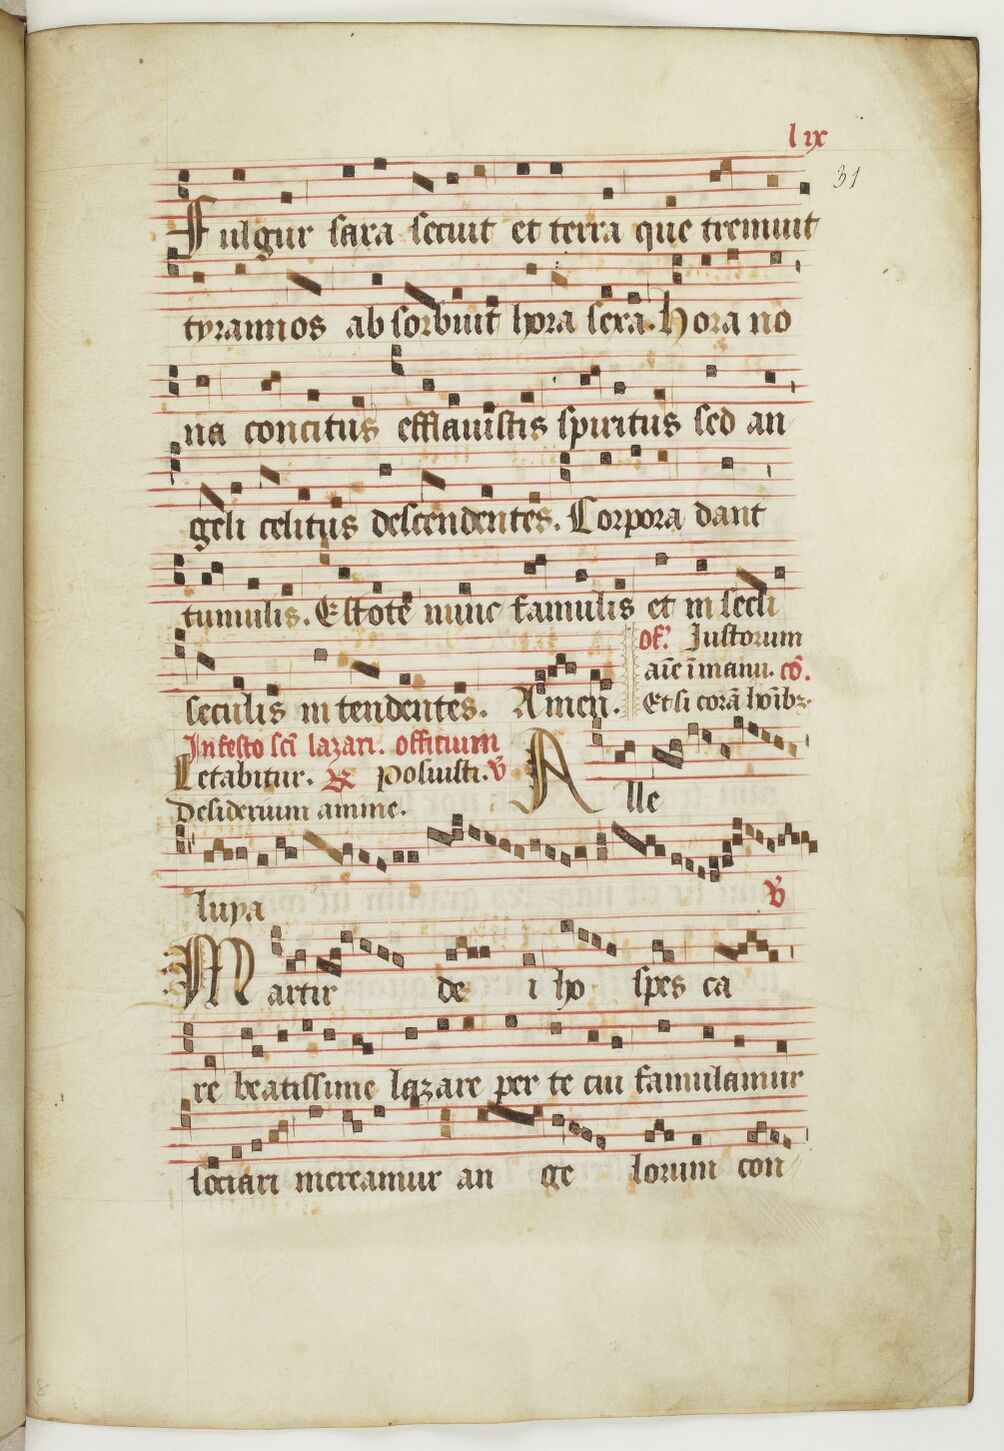 lix
31
Fulgur saxa secuit et terra que tremuit
tyrannos absorbuit hora sexa. Hora no
na concitus efflauistis spiritus sed an
geli celitus descendentes. Corpora dant
tumulis. Estote nunc famulis et in secli
seculis in tendentes. Amen.
of. Justorum
aīe ī manu. cō.
Et si corā hoībz.
In festo scī lazari. offitium
Letabitur. R Posuisti. V
Desiderium anime.
Alle
luya
V
Martir de i ho spes ca
re beatissime lazare per te cui famulamur
sociari mereamur an ge lorum con
8